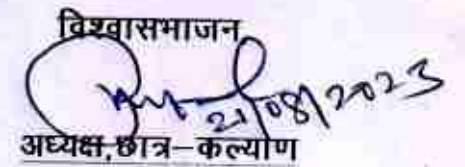 विश्वासभाजन
21/08/2023
अध्यक्ष,छात्र–कल्याण